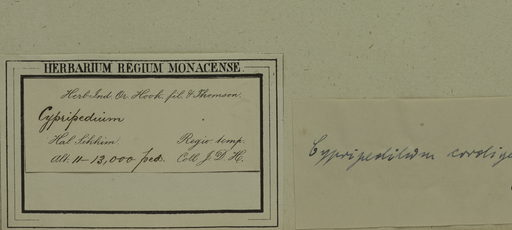 HERBARIUM REGIUM MONACENSE.
Herb. Ind. Or. Hook. fil. & Thomson.
Cypripedium
Hab. Sikkim. Regio temp.
Alt. 11-13,000 ped. Coll. J. D. H.
Cypripedilum